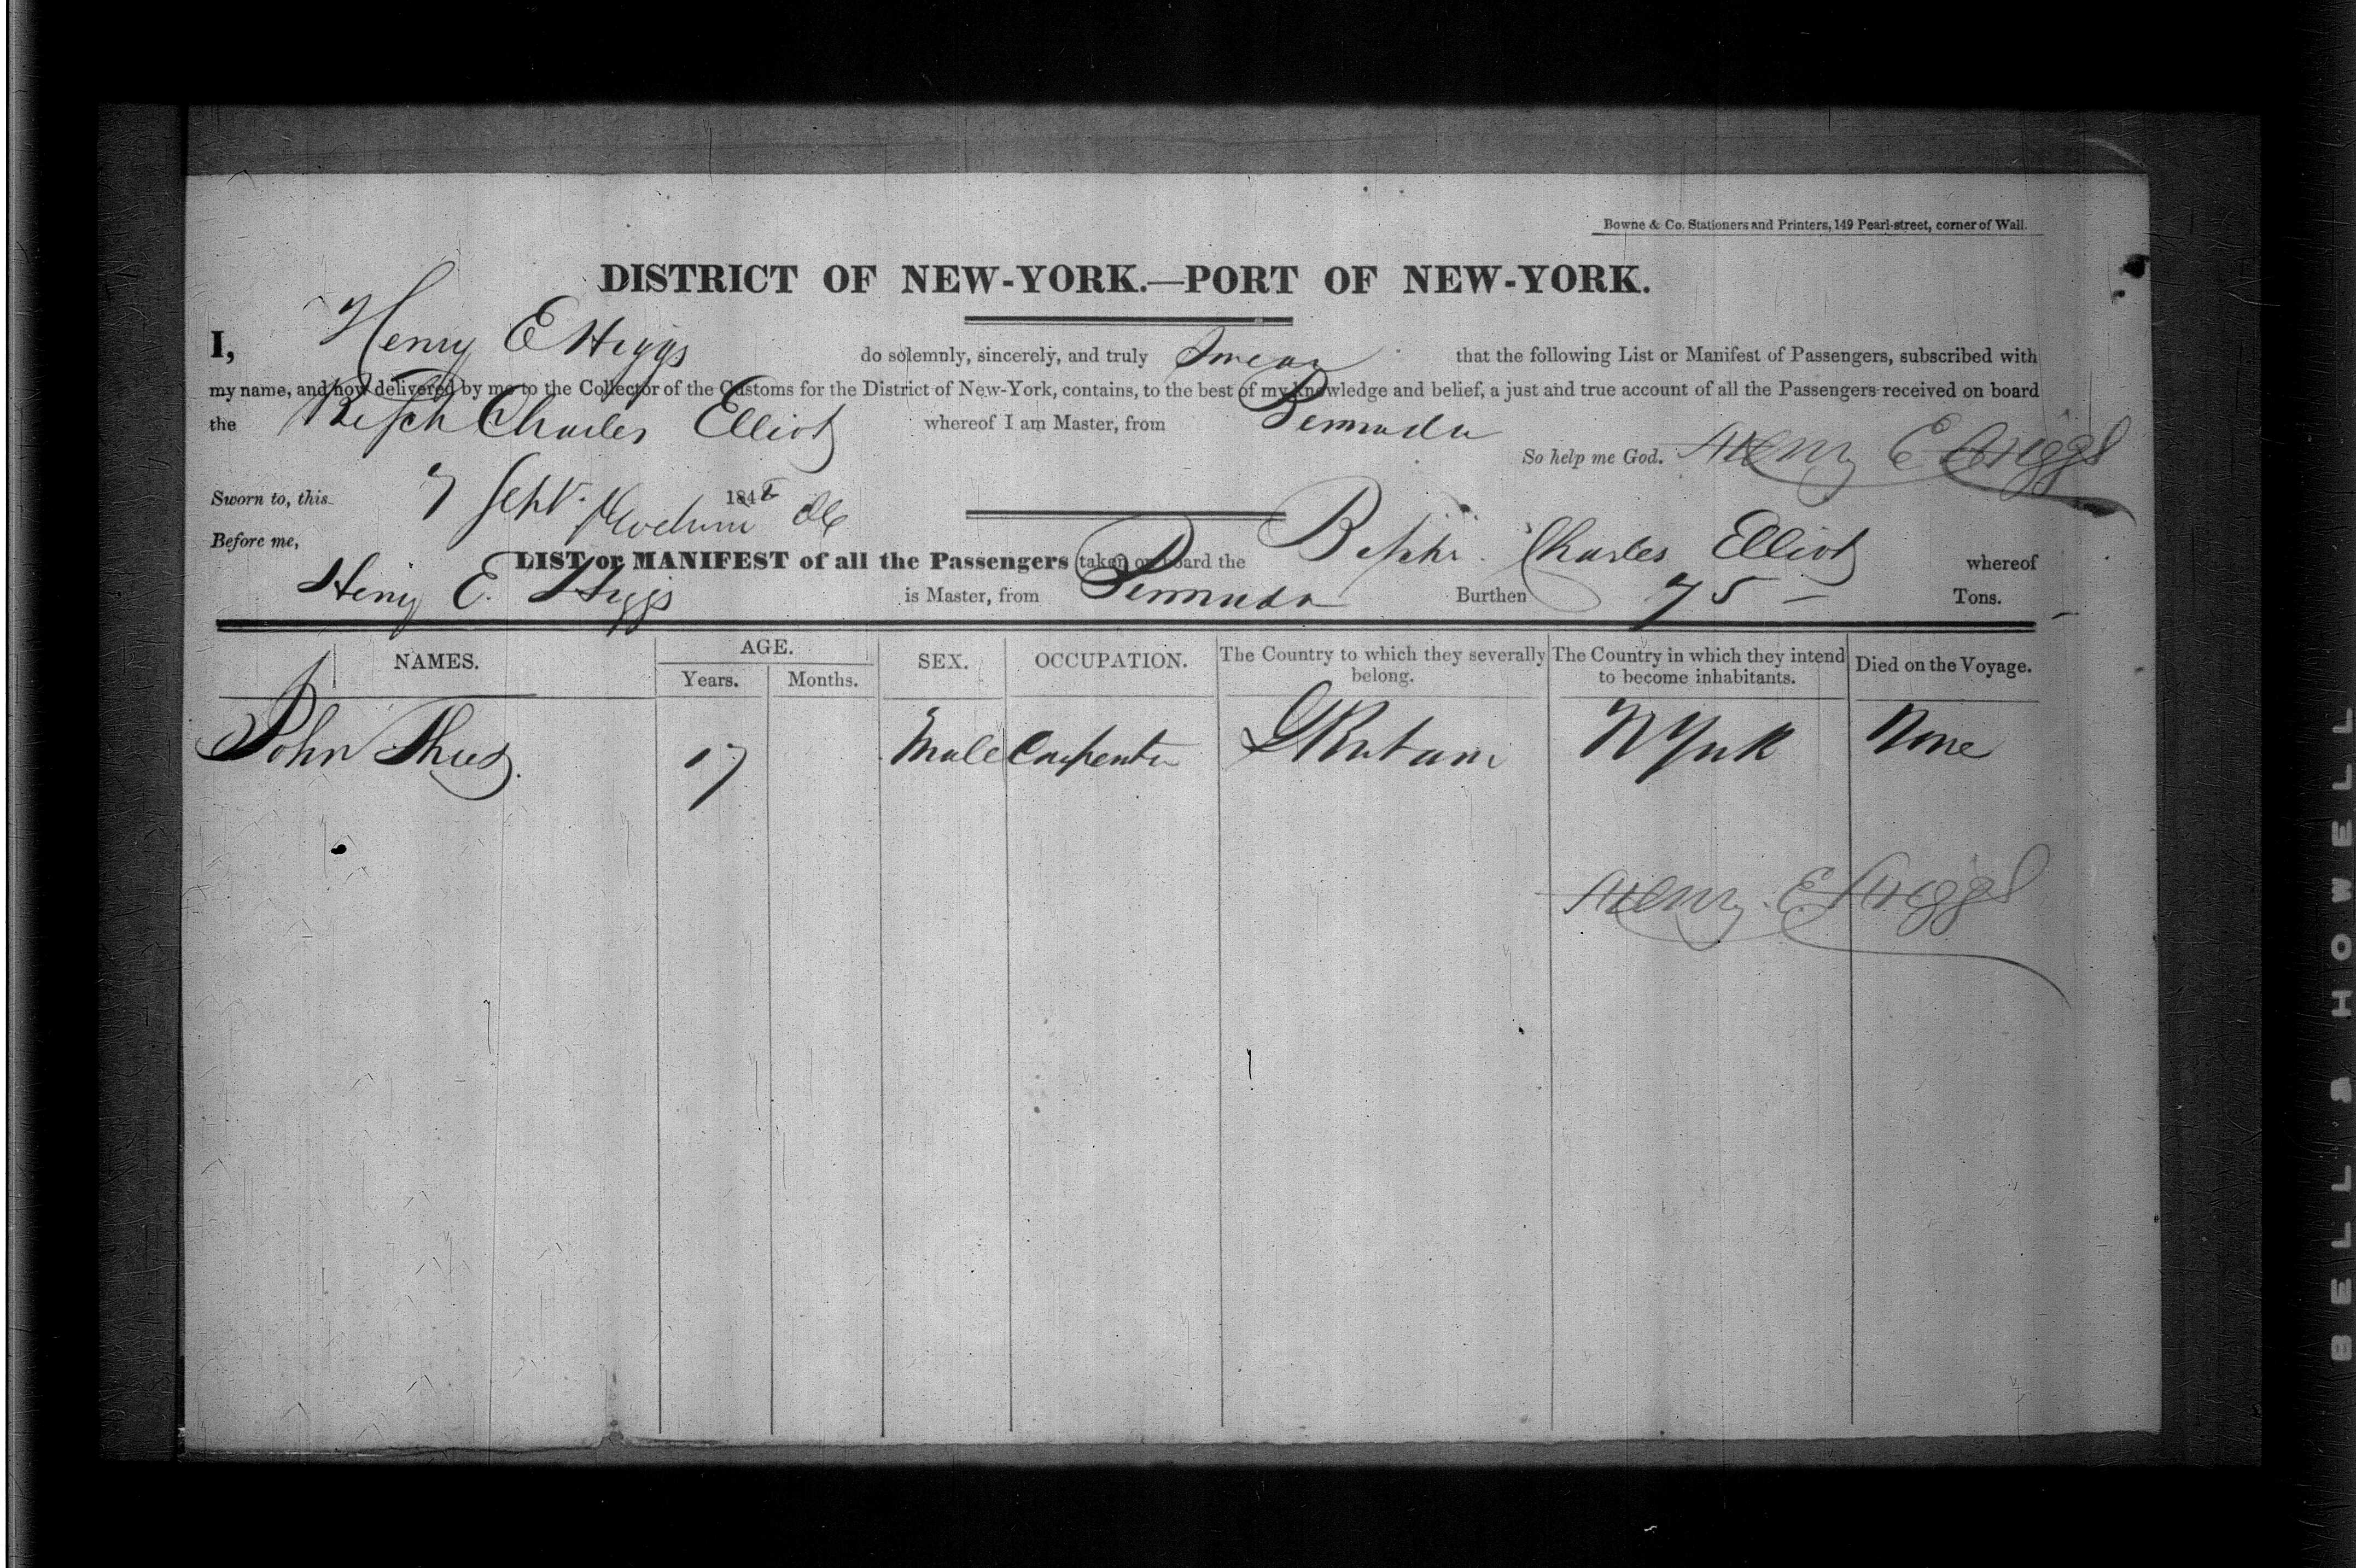 Bowne & Co. Stationers and Printers, 149 Pearl-street, corner of Wall.
DISTRICT OF NEW-YORK.—PORT OF NEW-YORK.
I, Henry E Higgs do solemnly, sincerely, and truly Swear that the following List or Manifest of Passengers, subscribed with
my name, and now delivered by me to the Collector of the Customs for the District of New-York, contains, to the best of my knowledge and belief, a just and true account of all the Passengers received on board
the Charles Elliot whereof I am Master, from Bermuda
So help me God. Henry E Higgs
Sworn to, this 7 Sept. 184
Before me,
LIST or MANIFEST of all the Passengers taken on board the Charles Elliot whereof
Henry E. Higgs is Master, from Bermuda Burthen 75 Tons.
NAMES. AGE. SEX. OCCUPATION. The Country to which they severally belong. The Country in which they intend to become inhabitants. Died on the Voyage.
Years. Months.
John 17 Male Carpenter G Britain N York None
Henry E. Higgs
BELL & HOWELL